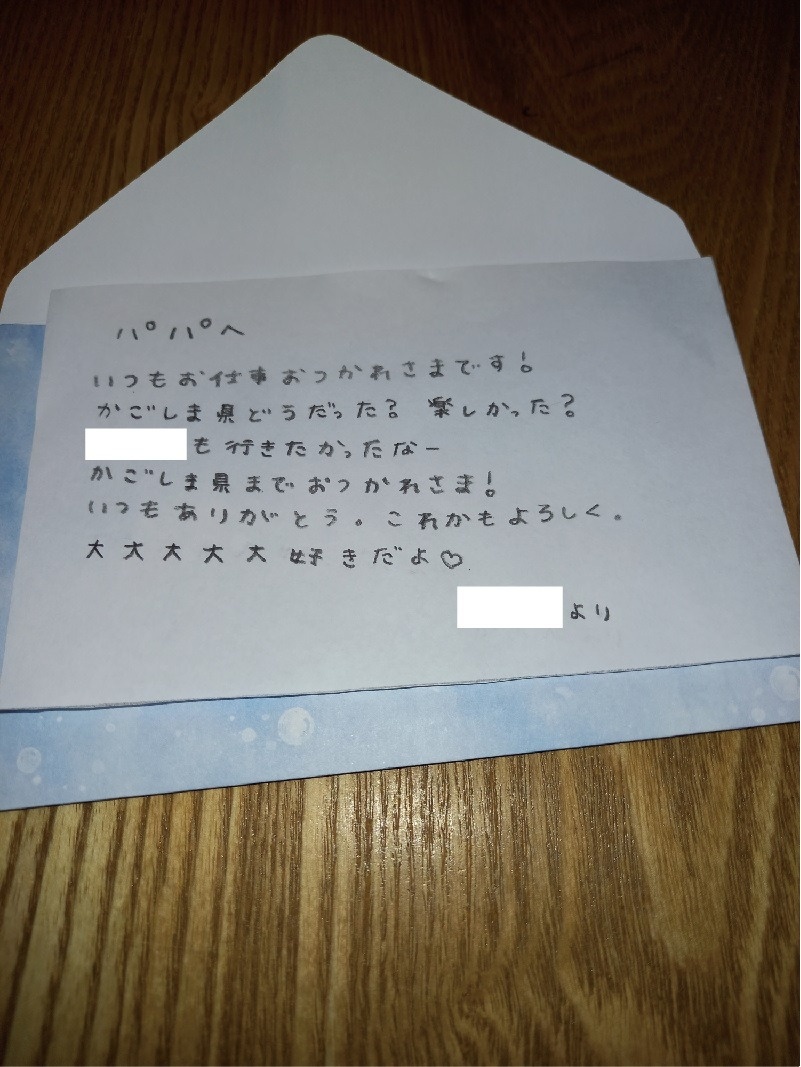 パパへ
いつもお仕事おつかれさまです!
かごしま県どうだった?楽しかった?
も行きたかったなー
かごしま県までおつかれさま!
いつもありがとう。これかもよろしく。
大大大大大好きだよ♡
より